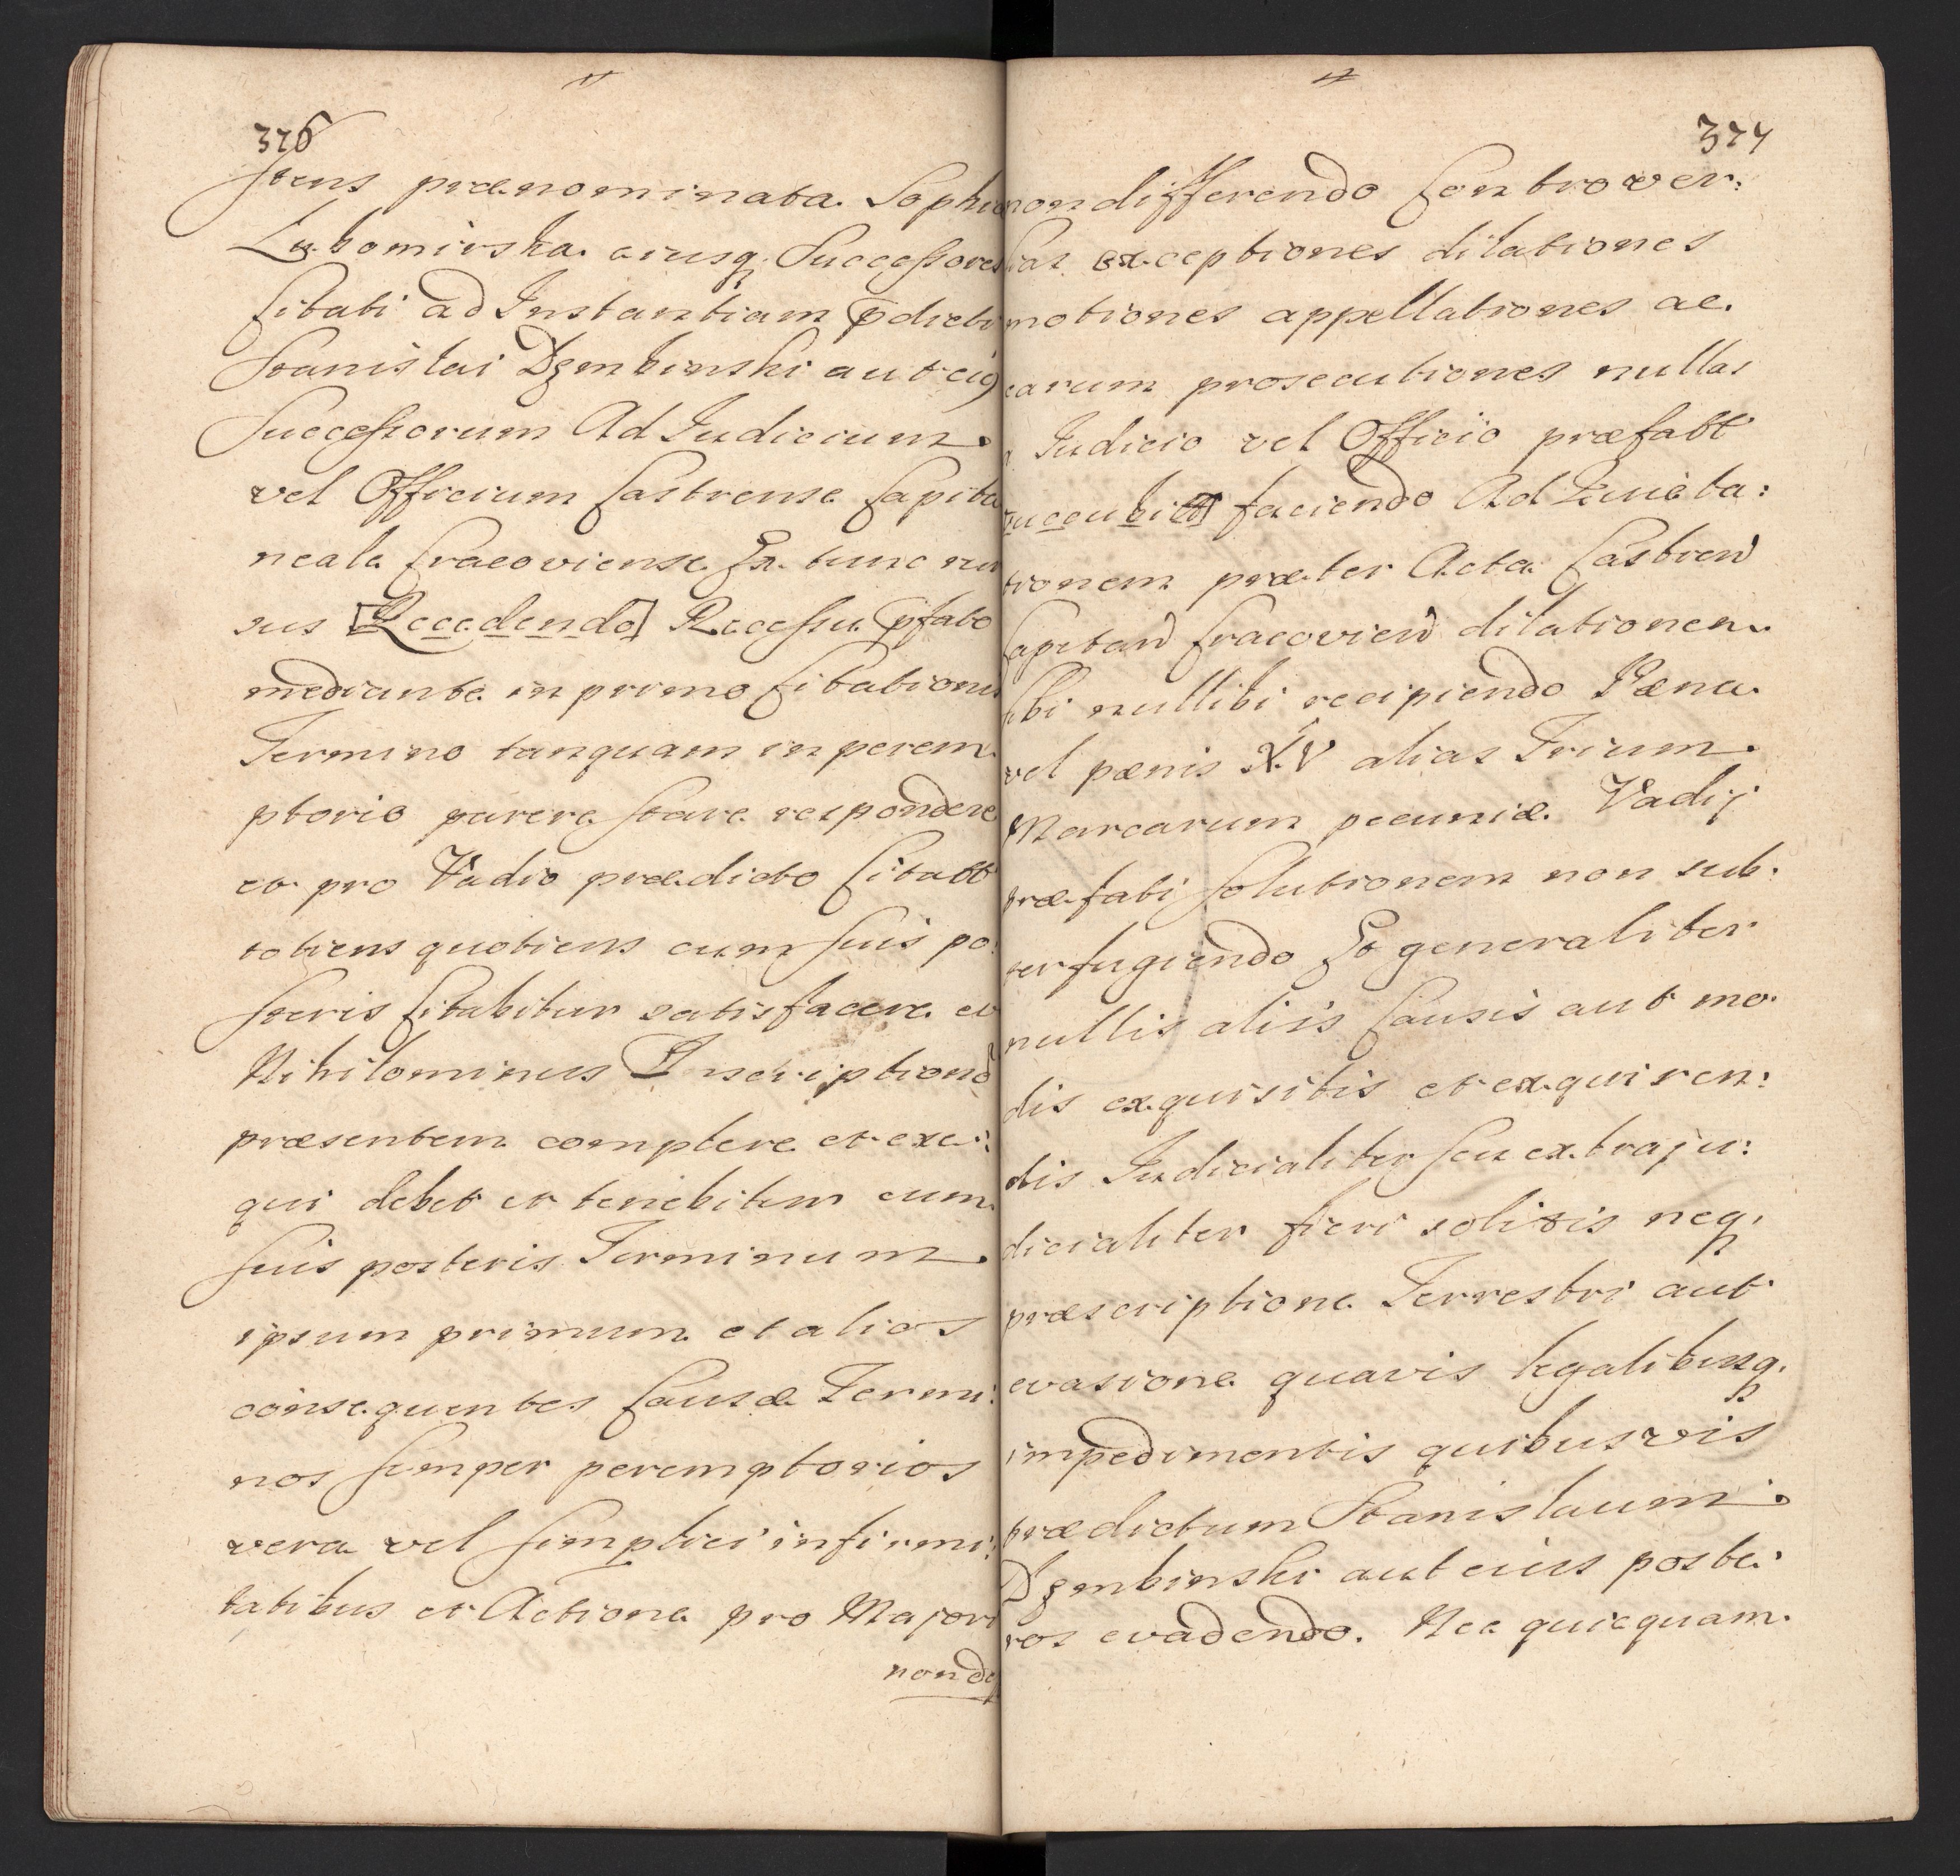 376
stens prænominata Sophia
Lubomirska eiusq. Successores
Citati ad Instantiam pdicti
Stanislai Dzembinski aut eiꝰ
Successorum Ad Judicium
vel Officium Castrense Capita
neale Cracoviense Ex tunc rur
sus [Recedendo] Recessu pfato
mediante in primo Citationis
Termino tanquam in perem
ptorio parere stare respondere
et pro Vadio prædicto Citatt
totiens quotiens cum suis po:
steris Citabitur satisfacere et
Nihilominus Inscriptione
præsentem complere et exe:
qui debet et tenebitur cum
suis posteris Terminum
ipsum primum et alios
consequentes Causæ Termi:
nos semper peremptorios
vera vel simplici infirmi:
tatibus et Actione pro Majori
non de
377
non differendo Controver:
sias exceptiones dilationes
motiones appellationes ac
earum prosecutiones nullas
Judicio vel Officio præfatt
succubi[tt] faciendo Ad
tionem præter Acta Castren
Capitan Cracovien dilationem
sibi nullibi recipiendo Pæna
vel pænis XV alias Trium
Marcarum pecuniæ Vadij
præfati solutionem non sub:
terfugiendo Et generaliter
nullis aliis Causis aut mo:
dis exquisitis et exquiren:
dis Judicialiter seu extraju:
dicialiter fieri solitis neq.
præscriptione Terrestri aut
evasione quavis legalibusq.
impedimentis quibusvis
prædictum Stanislaum
Dzembinski aut eius poste:
ros evadendo. Nec quicquam